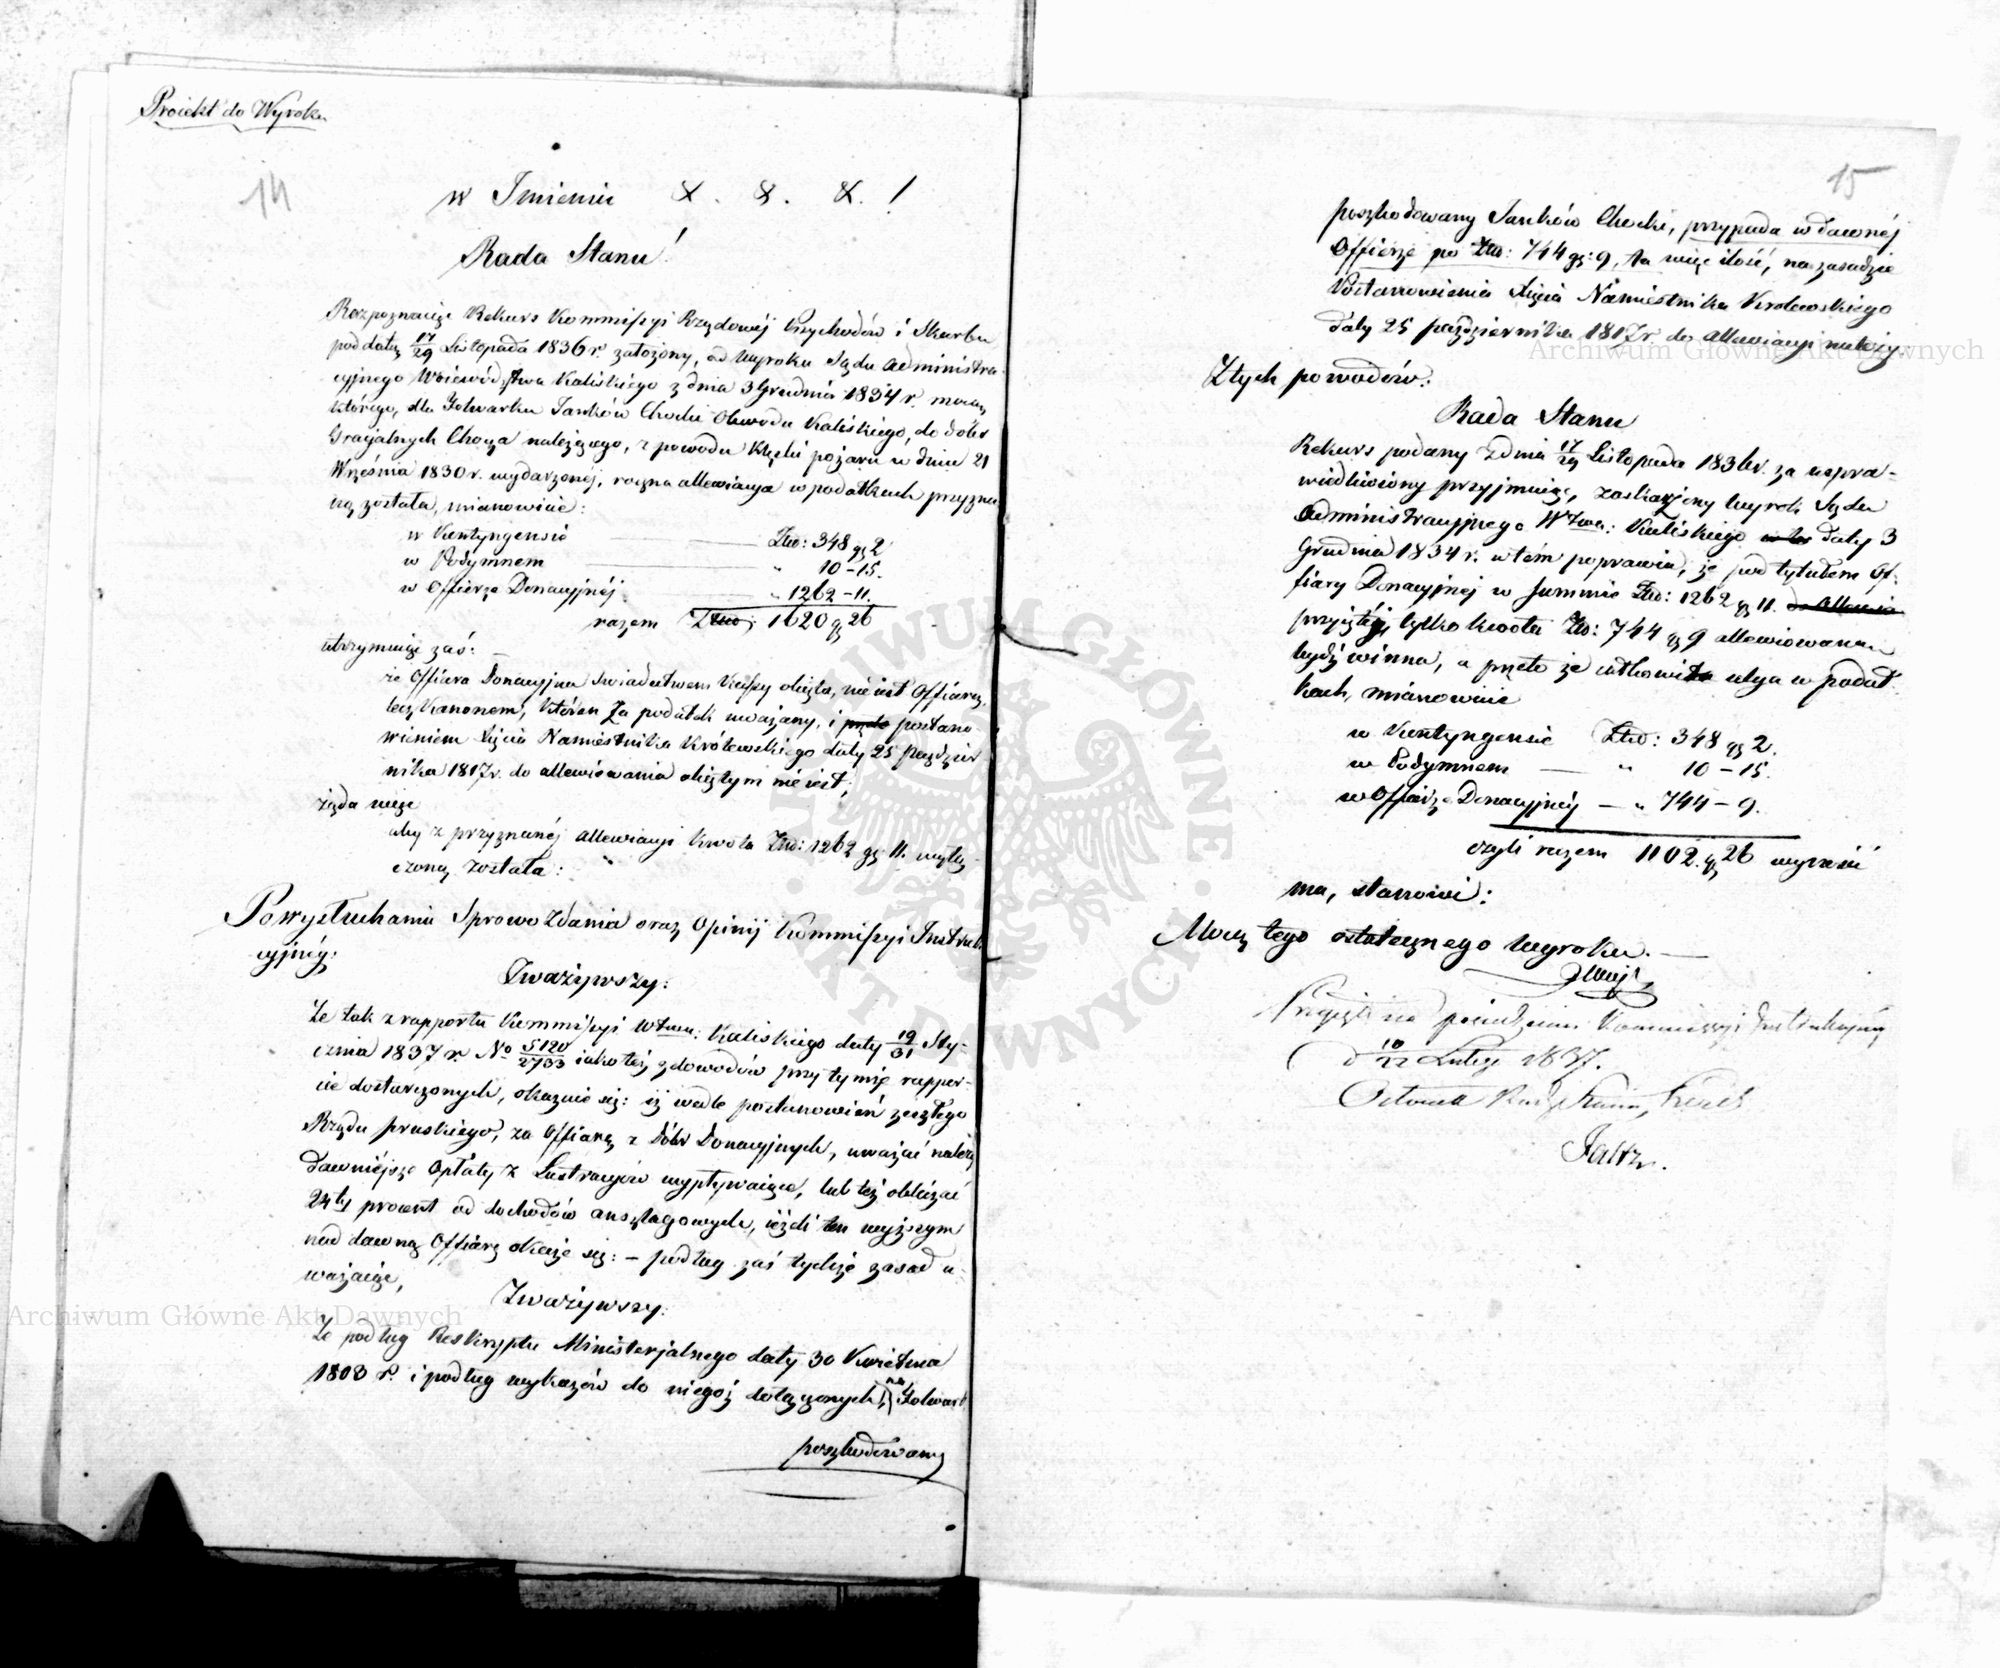 Proiekt do Wyroku
14
w Imieniu &. &. &. !
Rada Stanu!
Rozpoznaiąc Rekurs Kommissyi Rządowéj Przychodów i Skarbu
pod datą 17/29 Listopada 1836 r. założony, od wyroku Sądu Administra-
cyjnego Woiewództwa Kaliskiego z dnia 3 Grudnia 1834 r. mocą
którego, dla Folwarku Janków Chocki Obwodu Kaliskiego, do dóbr
Gracjalnych Chocza należącego, z powodu klęski pożaru w dniu 21
Września 1830 r. wydarzonéj, roczna allewiacya w podatkach przyzna
ną została, mianowicie:
w Kontyngensie Złto: 348 gr 2
w Podymnem " 10-15.
w Offierze Donacyjnéj " 1262-11.
razem Złto: 1620 gr 26
utrzymuiąc zaś:
że Offiara Donacyjna Świadectwem Kassy obięta, nie iest Offiarą,
lecz Kanonem, któren za podatek uważany, i przeto postano
wieniem Xięcia Namiestnika Królewskiego daty 25 Paździer
nika 1817 r. do allewiowania obiętym nie iest;
żąda więc
aby z przyznanéj allewiacyi kwota Złto: 1262 gr: 11. wyłą-
czoną została:
Po wysłuchaniu Sprawozdania oraz Opinij Kommissyi Instruk
cyjnéj:
Zważywszy:
Że tak z rapportu Kommissyi Wtwa: Kaliskiego daty 19/31 Sty-
cznia 1837 r. No 5120/2733 iako też z dowodów przy tymże rappor-
cie dostarczonych, okazuie się: iż wedle postanowień zeszłego
Rządu pruskiego, za Offiarę z Dóbr Donacyjnych, uważać należy
dawniejsze Opłaty z Lustracyów wypływaiące, lub też obliczać
24ty procent od dochodów ansztagowych, ieżeli ten wyższym
nad dawną Offiarę okaże się: - podług zaś tychże zasad u-
ważaiąc,
Zważywszy:
Że podług Reskryptu Ministerjalnego daty 30 Kwietnia
1808 r. i podług wykazów do niegoż dołączonych, na Folwark
poszkodowany
15
poszkodowany Janków Chocki, przypada w dawnéj
Offierze po Złto: 744 gr: 9, ta więc ilość, na zasadzie
Postanowienia Xięcia Namiestnika Królewskiego
daty 25 października 1817 r. do allewiacyi należy.
Z tych powodów:
Rada Stanu
Rekurs podany z dnia 17/29 Listopada 1836 r. za uspra-
wiedliwiony przyjmuiąc, zaskarżony wyrok Sądu
Administracyjnego Wtwa: Kaliskiego daty 3
Grudnia 1834 r. w tém poprawia, że pod tytułem Of-
fiary Donacyjnéj w summie Złto: 1262 gr 11. do allewia
przyiętéj, tylko kwota Złto: 744 gr 9 allewiowana
bydź winna, a przeto że całkowita ulga w podat
kach, mianowicie
w Kontyngensie Złto: 348 gr 2.
w Podymnem — " 10-15.
w Offiarze Donacyjnéj — " 744-9.
czyli razem 1102. gr 26 wynosić
ma, stanowi:
Mocą tego ostatecznego wyroku. —
Przyięty na posiedzeniu Kommissyi Instrukcyjnéj
d 10/22 Lutego 1837.
Archiwum Główne Akt Dawnych
Archiwum Główne Akt Dawnych
ARCHIWUM GŁÓWNE AKT DAWNYCH